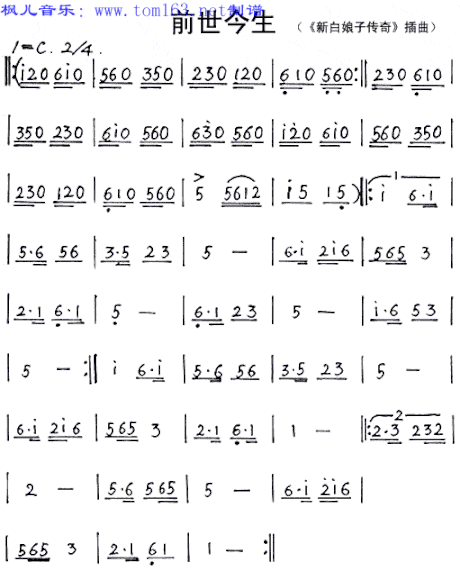 枫儿音乐：www.tom163.net制谱
前世今生 （《新白娘子传奇》插曲）
1=C. 2/4.
‖:(i̇20 6i̇0 | 560 350 | 230 120 | 6̣10 5̣6̣0 :‖ 230 6̣10 |
| 350 230 | 6i̇0 560 | 63̇0 560 | i̇2̇0 6i̇0 | 560 350 |
| 230 120 | 6̣10 560 | 5 5612 | i̇5 15̣) ‖: 1 i̇ 6·i̇ |
| 5·6 56 | 3·5 23 | 5 — | 6·i̇ 2̇i̇6 | 565 3 |
| 2·1 6̣·1 | 5̣ — | 6̣·1 23 | 5 — | i̇·6 53 |
| 5 — :‖ i̇ 6·i̇ | 5·6 56 | 3·5 23 | 5 — |
| 6·i̇ 2̇i̇6 | 565 3 | 2·1 6̣·1 | 1 — ‖: 2 2·3 232 |
| 2 — | 5·6 565 | 5 — | 6·i̇ 2̇i̇6 |
| 565 3 | 2·1 6̣1 | 1 — :‖